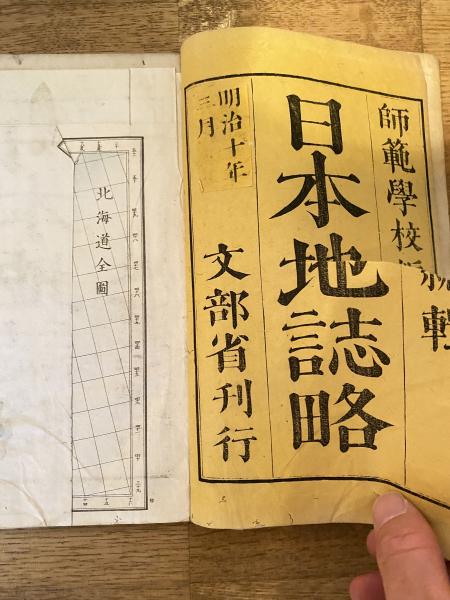 師範學校
輯
日本地誌略
明治十年
三月
文部省刊行
北海道全圖